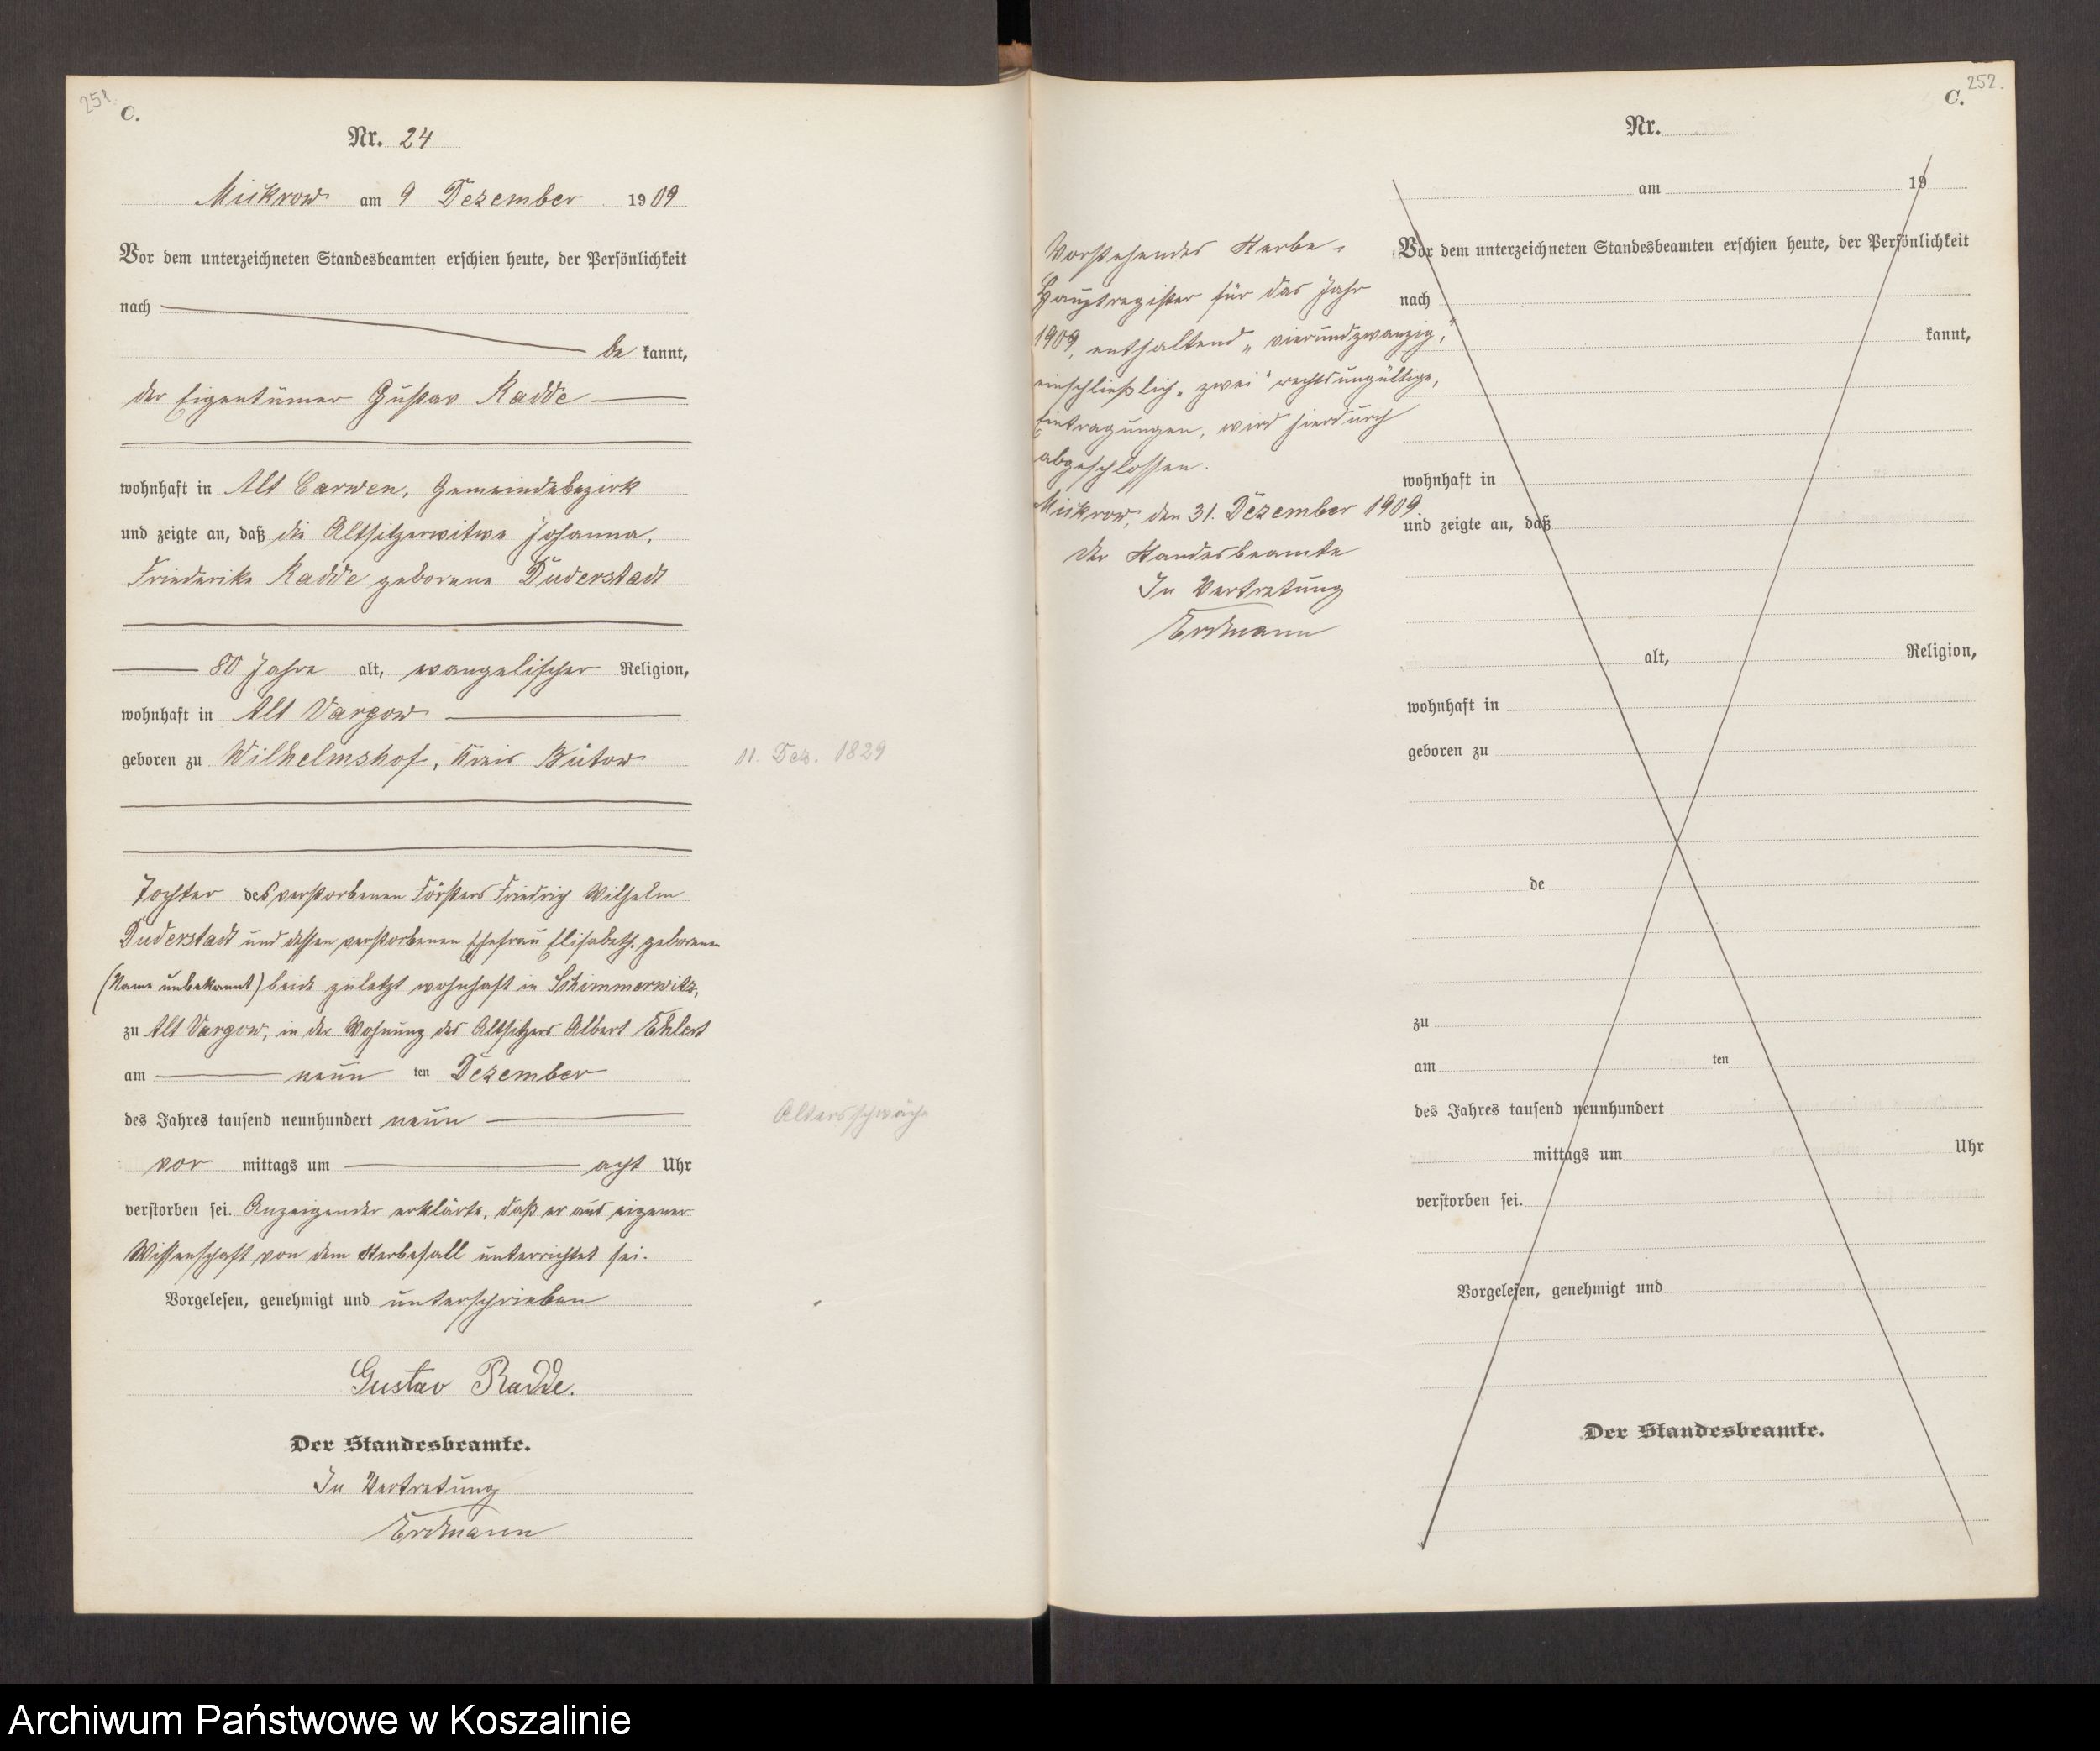 251.
C.
Nr. 24
Mickrow am 9 Dezember 1909
Vor dem unterzeichneten Standesbeamten erschien heute, der Persönlichkeit
nach
be kannt,
der Eigentümer Gustav Radde
wohnhaft in Alt Carwen, Gemeindebezirk
und zeigte an, daß die Altsitzerwitwe Johanna,
Friederike Radde geborene Duderstadt
80 Jahre alt, evangelischer Religion,
wohnhaft in Alt Vargow
geboren zu Wilhelmshof, Kreis Bütow
11. Dez. 1829
Tochter des verstorbenen Försters Friedrich Wilhelm
Duderstadt und dessen verstorbenen Ehefrau Elisabeth geborenen
(Name unbekannt) beide zuletzt wohnhaft in Schimmerwitz,
zu Alt Vargow, in der Wohnung des Altsitzers Albert Ehlert
am neun ten Dezember
des Jahres tausend neunhundert neun
Altersschwäche
vor mittags um acht Uhr
verstorben sei. Anzeigender erklärte, daß er aus eigener
Wissenschaft von dem Sterbefall unterrichtet sei.
Vorgelesen, genehmigt und unterschrieben
Gustav Radde.
Der Standesbeamte.
In Vertretung
Erdmann
252.
C.
Vorstehendes Sterbe-
Hauptregister für das Jahr
1909, enthaltend „vierundzwanzig,"
einschließlich „zwei" rechtsungültige,
Eintragungen, wird hierdurch
abgeschlossen.
Mickrow, den 31. Dezember 1909.
Der Standesbeamte
In Vertretung
Erdmann
Nr.
am 19
Vor dem unterzeichneten Standesbeamten erschien heute, der Persönlichkeit
nach
kannt,
wohnhaft in
und zeigte an, daß
alt, Religion,
wohnhaft in
geboren zu
de
zu
am ten
des Jahres tausend neunhundert
mittags um Uhr
verstorben sei.
Vorgelesen, genehmigt und
Der Standesbeamte.
Archiwum Państwowe w Koszalinie